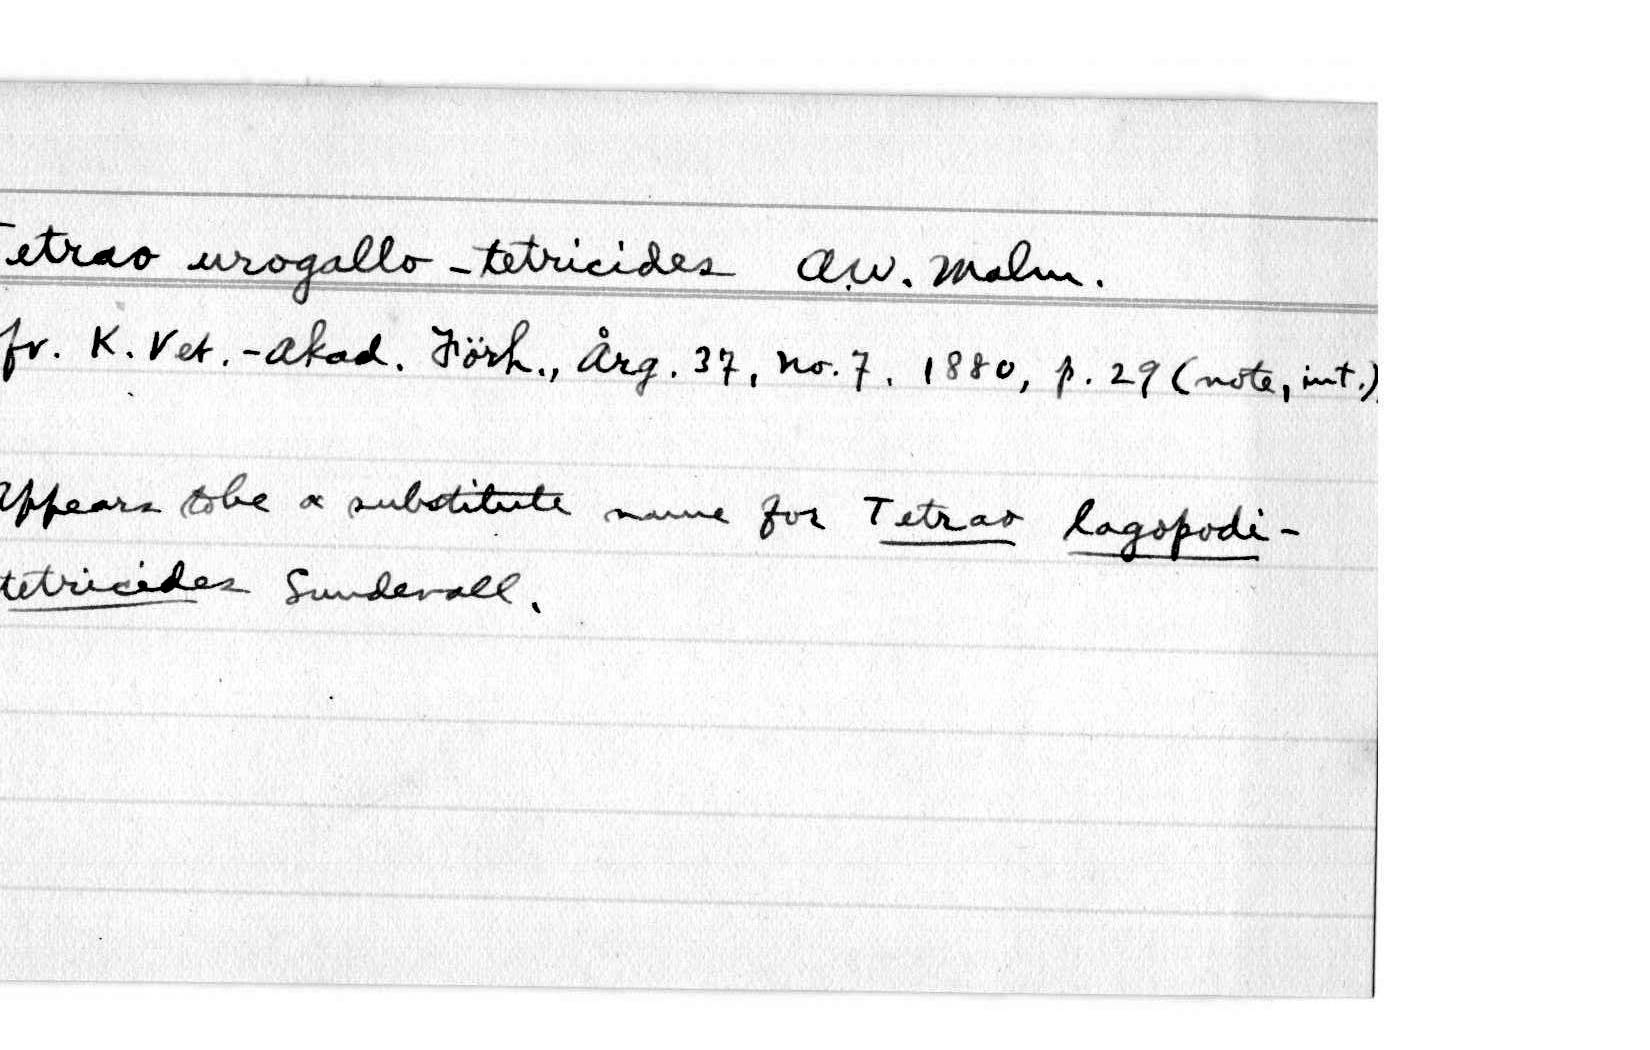 Tetrao urogallo-tetricides A.W. Malm.
fv. K. Vet.-Akad. Förh., Årg. 37, no. 7. 1880, p. 29 (note, int.)
Appears to be a substitute name for Tetrao lagopodi-
tetricides Sundevall.